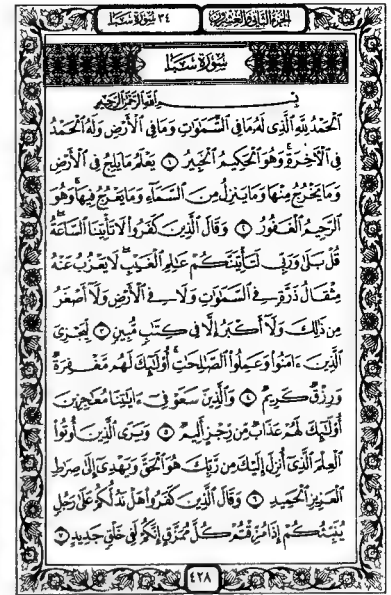 الجزء الثاني والعشرون
٣٤ سورة سبأ
سورة سبأ
بسم الله الرحمن الرحيم
ٱلْحَمْدُ لِلَّهِ ٱلَّذِى لَهُۥ مَا فِى ٱلسَّمَـٰوَٰتِ وَمَا فِى ٱلْأَرْضِ وَلَهُ ٱلْحَمْدُ
فِى ٱلْأَخِرَةِ ۚ وَهُوَ ٱلْحَكِيمُ ٱلْخَبِيرُ ١ يَعْلَمُ مَا يَلِجُ فِى ٱلْأَرْضِ
وَمَا يَخْرُجُ مِنْهَا وَمَا يَنزِلُ مِنَ ٱلسَّمَآءِ وَمَا يَعْرُجُ فِيهَا ۚ وَهُوَ
ٱلرَّحِيمُ ٱلْغَفُورُ ٢ وَقَالَ ٱلَّذِينَ كَفَرُوا۟ لَا تَأْتِينَا ٱلسَّاعَةُ ۖ
قُلْ بَلَىٰ وَرَبِّى لَتَأْتِيَنَّكُمْ عَـٰلِمِ ٱلْغَيْبِ ۖ لَا يَعْزُبُ عَنْهُ
مِثْقَالُ ذَرَّةٍ فِى ٱلسَّمَـٰوَٰتِ وَلَا فِى ٱلْأَرْضِ وَلَآ أَصْغَرُ
مِن ذَٰلِكَ وَلَآ أَكْبَرُ إِلَّا فِى كِتَـٰبٍ مُّبِينٍ ٣ لِّيَجْزِىَ
ٱلَّذِينَ ءَامَنُوا۟ وَعَمِلُوا۟ ٱلصَّـٰلِحَـٰتِ ۚ أُو۟لَـٰٓئِكَ لَهُم مَّغْفِرَةٌ
وَرِزْقٌ كَرِيمٌ ٤ وَٱلَّذِينَ سَعَوْ فِىٓ ءَايَـٰتِنَا مُعَـٰجِزِينَ
أُو۟لَـٰٓئِكَ لَهُمْ عَذَابٌ مِّن رِّجْزٍ أَلِيمٌ ٥ وَيَرَى ٱلَّذِينَ أُوتُوا۟
ٱلْعِلْمَ ٱلَّذِىٓ أُنزِلَ إِلَيْكَ مِن رَّبِّكَ هُوَ ٱلْحَقَّ وَيَهْدِىٓ إِلَىٰ صِرَٰطِ
ٱلْعَزِيزِ ٱلْحَمِيدِ ٦ وَقَالَ ٱلَّذِينَ كَفَرُوا۟ هَلْ نَدُلُّكُمْ عَلَىٰ رَجُلٍ
يُنَبِّئُكُمْ إِذَا مُزِّقْتُمْ كُلَّ مُمَزَّقٍ إِنَّكُمْ لَفِى خَلْقٍ جَدِيدٍ ٧
٤٢٨